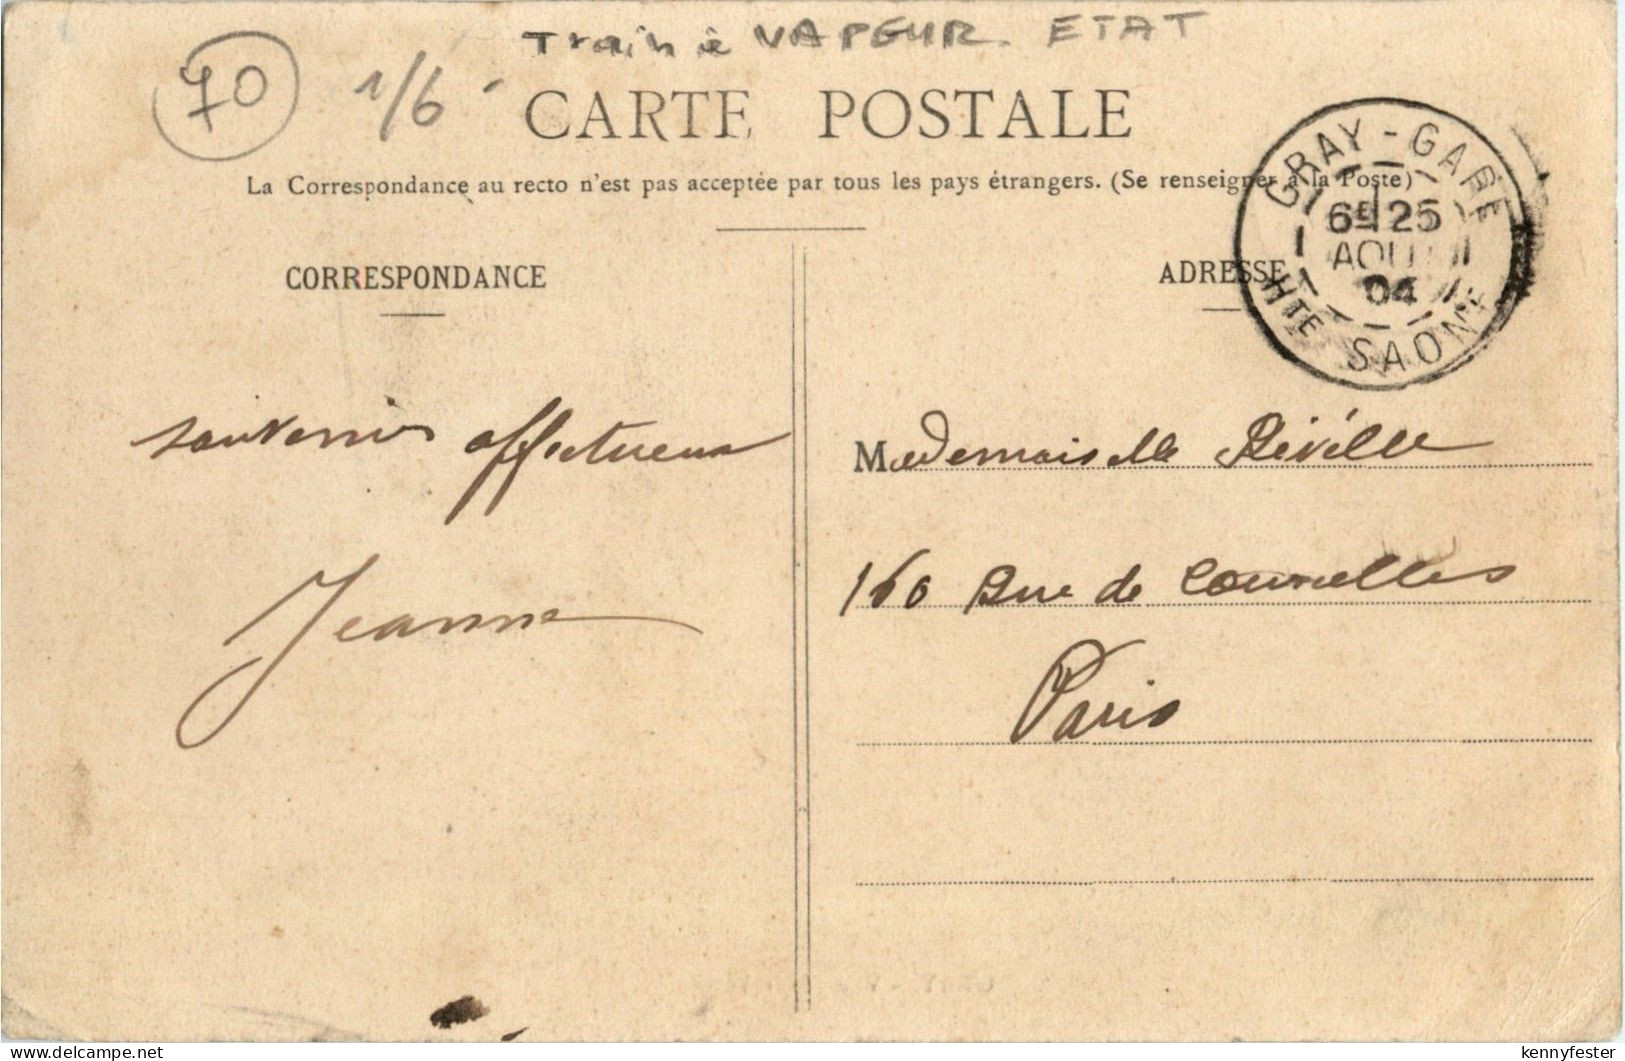 Train à VAPEUR. ETAT
70
1/6
CARTE POSTALE
La Correspondance au recto n'est pas acceptée par tous les pays étrangers. (Se renseigner à la Poste)
GRAY - GARE
6E 25
AOUT
04
HTE SAONE
CORRESPONDANCE
ADRESSE
souvenirs affectueux
Jeanne
Mademoiselle Réville
160 Rue de Courcelles
Paris
delcampe.net
kennyfester